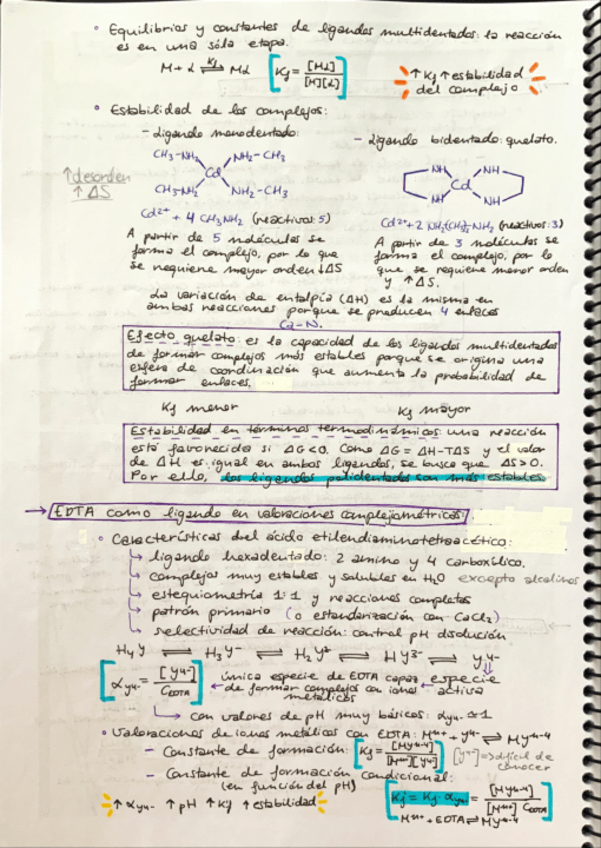 • Equilibrios y constantes de ligandos multidentados: la reacción
es en una sóla etapa.
M + L ⇌ ML
Kf
[ Kf = [ML] / [M][L] ]
↑ Kf ↑ estabilidad
del complejo
• Estabilidad de los complejos:
- Ligando monodentado:
- Ligando bidentado: quelato.
CH3-NH2 NH2-CH3
Cd
CH3-NH2 NH2-CH3
NH NH
Cd
NH NH
↑ desorden
↑ ΔS
Cd2+ + 4 CH3NH2 (reactivos: 5)
Cd2+ + 2 NH2(CH2)2NH2 (reactivos: 3)
A partir de 5 moléculas se
forma el complejo, por lo que
se requiere mayor orden ↓ΔS
A partir de 3 moléculas se
forma el complejo, por lo
que se requiere menor orden
y ↑ΔS.
La variación de entalpía (ΔH) es la misma en
ambas reacciones porque se producen 4 enlaces
Ca-N.
Efecto quelato: es la capacidad de los ligandos multidentados
de formar complejos más estables porque se origina una
esfera de coordinación que aumenta la probabilidad de
formar enlaces.
Kf menor
Kf mayor
Estabilidad en términos termodinámicos: una reacción
está favorecida si ΔG<0. Como ΔG = ΔH-TΔS y el valor
de ΔH es igual en ambos ligandos, se busca que ΔS>0.
Por ello, los ligandos polidentados son más estables.
→ EDTA como ligando en valoraciones complejométricas.
• Características del ácido etilendiaminotetraacético:
↳ ligando hexadentado: 2 amino y 4 carboxílico.
↳ complejos muy estables y solubles en H2O excepto alcalinos
↳ estequiometría 1:1 y reacciones completas
↳ patrón primario (o estandarización con CaCl2)
↳ selectividad de reacción: control pH disolución
H4Y ⇌ H3Y- ⇌ H2Y2- ⇌ HY3- ⇌ Y4-
[ αY4- = [Y4-] / CEDTA ]
única especie de EDTA capaz
de formar complejos con iones
metálicos
← especie
activa
↳ con valores de pH muy básicos: αY4- ≃ 1
• Valoraciones de iones metálicos con EDTA: Mn+ + Y4- ⇌ MYn-4
- Constante de formación: [ Kf = [MYn-4] / [Mn+][Y4-] ] [Y4-] => difícil de
conocer
- Constante de formación condicional:
(en función del pH)
[ Kf' = Kf · αY4- = [MYn-4] / [Mn+] CEDTA
Mn+ + EDTA ⇌ MYn-4 ]
↑ αY4- ↑ pH ↑ Kf' ↑ estabilidad